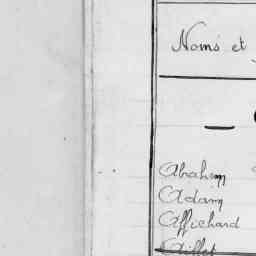 Noms et
Abraham
Adam
Affichard
Aillet